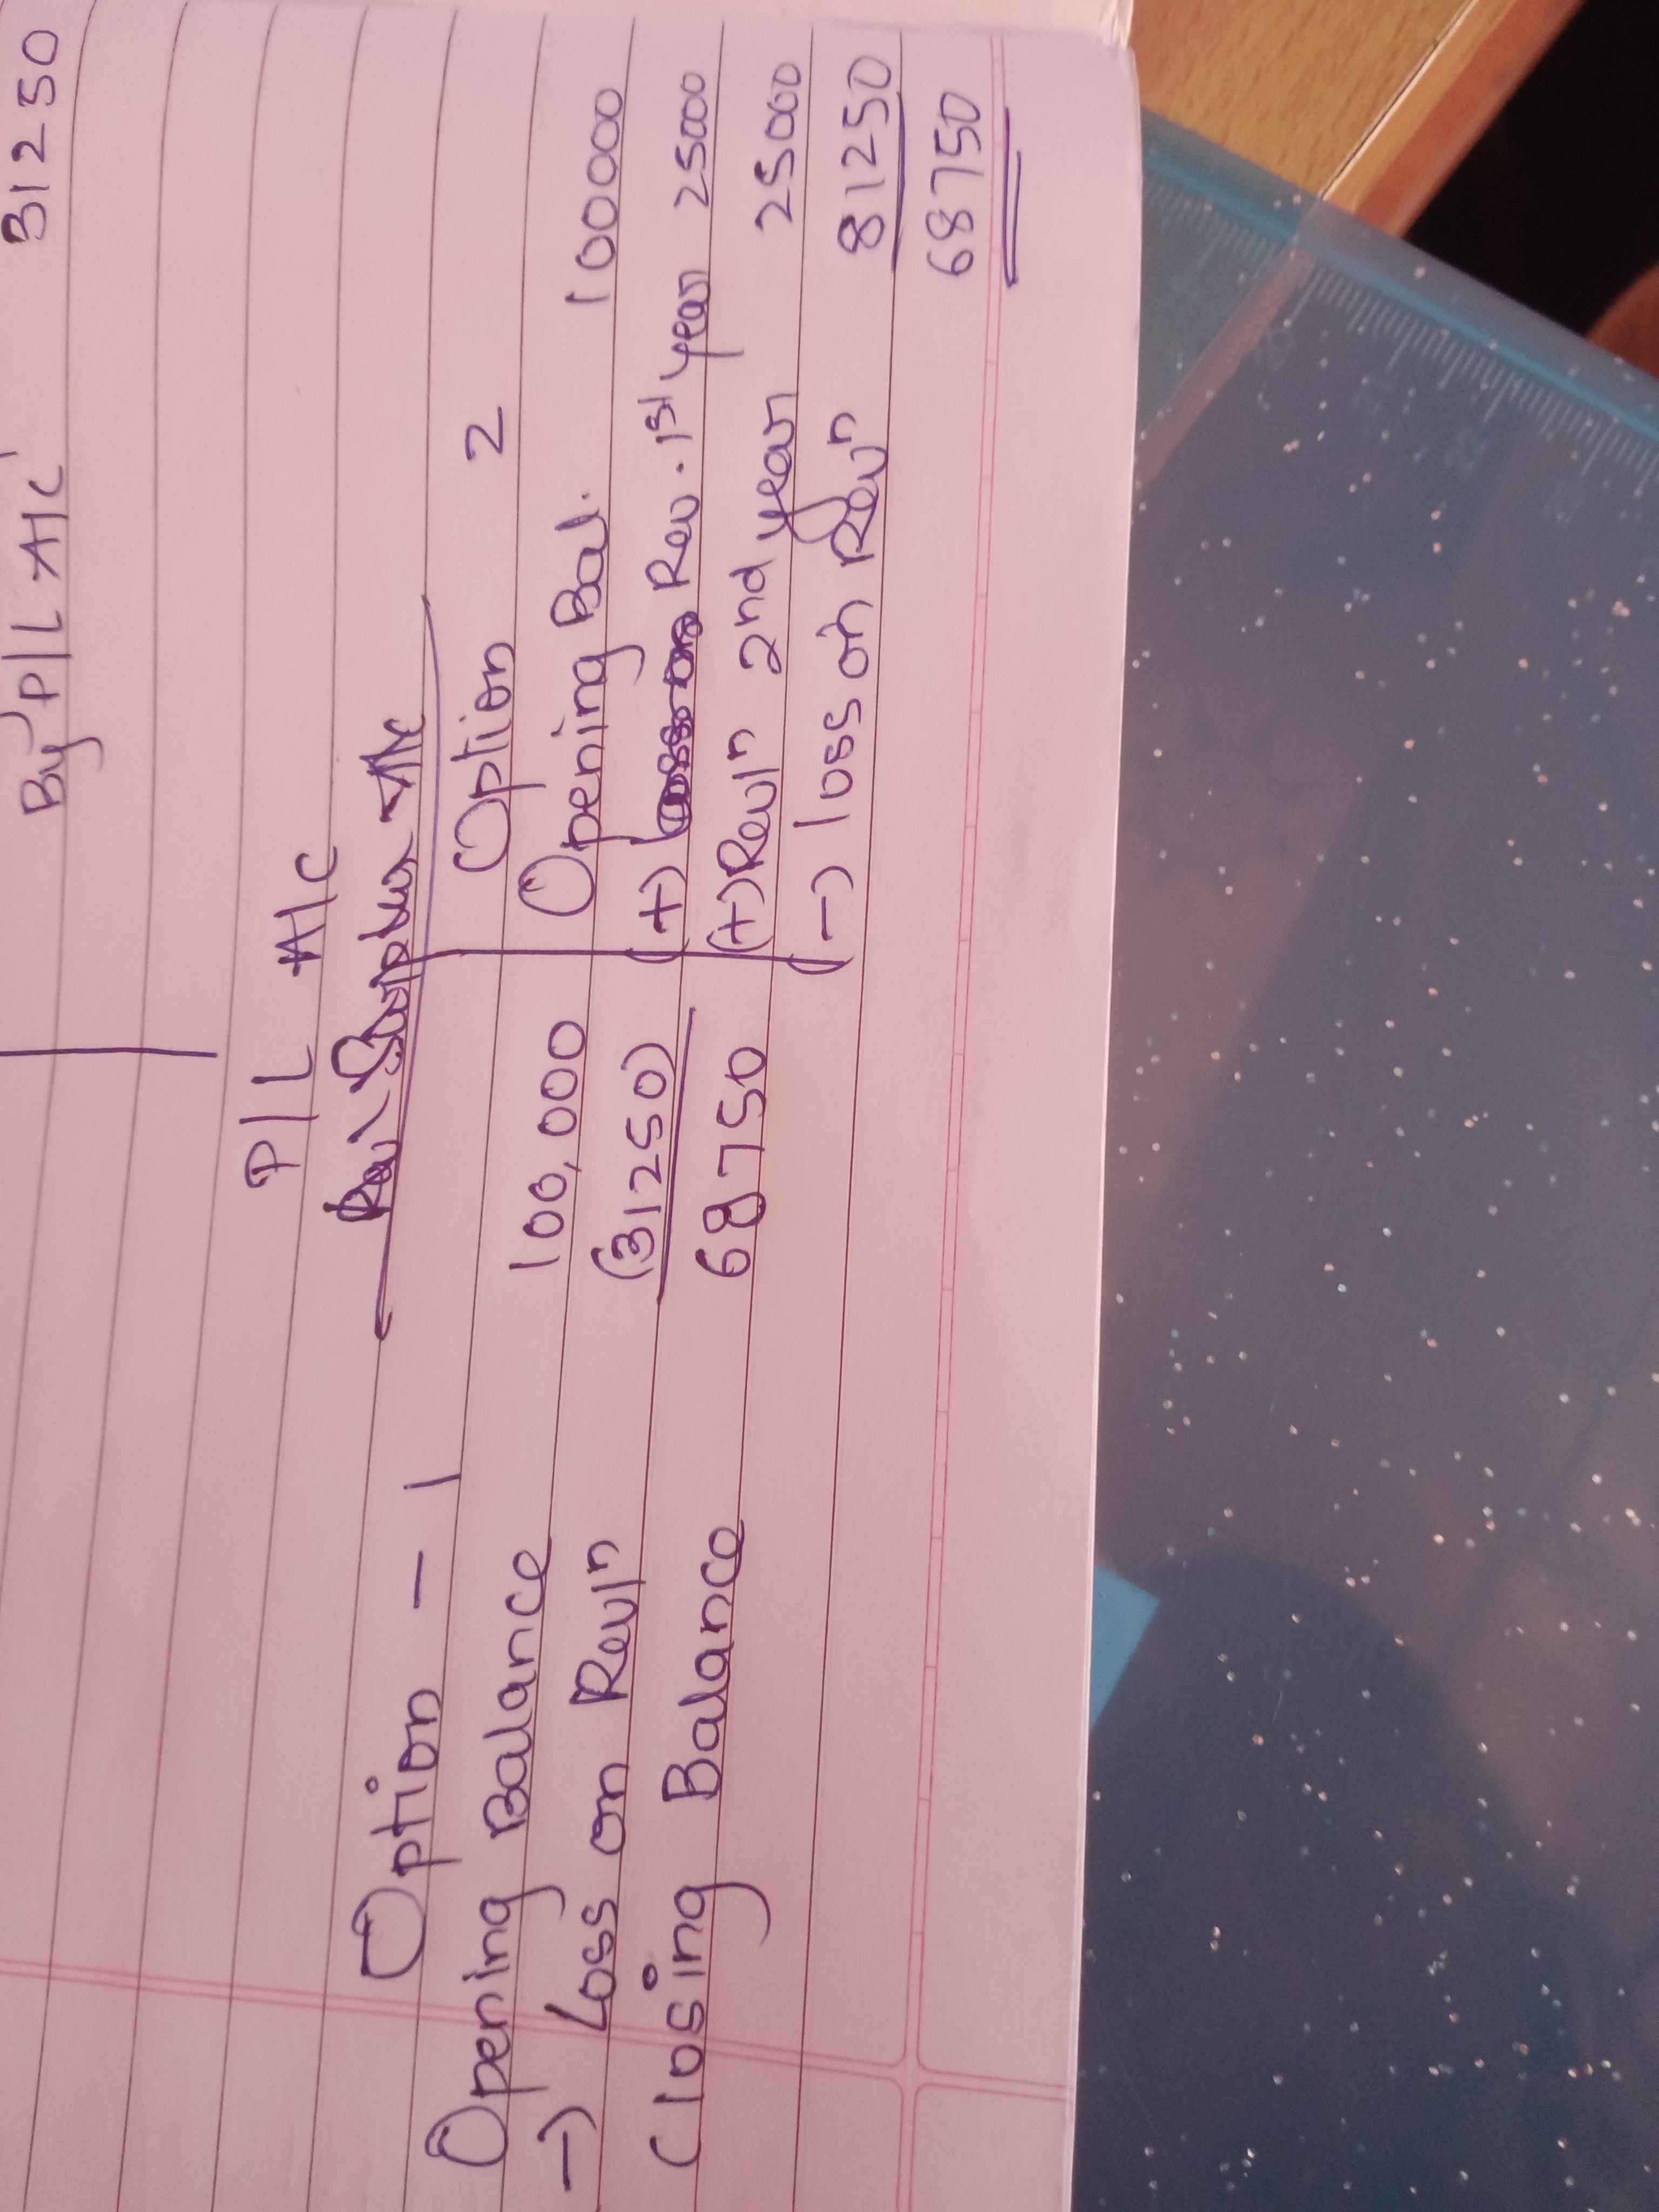 By P|L A|C 31250
P|L A|C
Option - 1
Opening Balance 100,000
-) Loss on Revlⁿ (31250)
Closing Balance 68750
Option 2
Opening Bal. 100000
(+) Rev. 1st year 25000
(+) Revlⁿ 2nd year 25000
(-) loss on Revⁿ 81250
68750